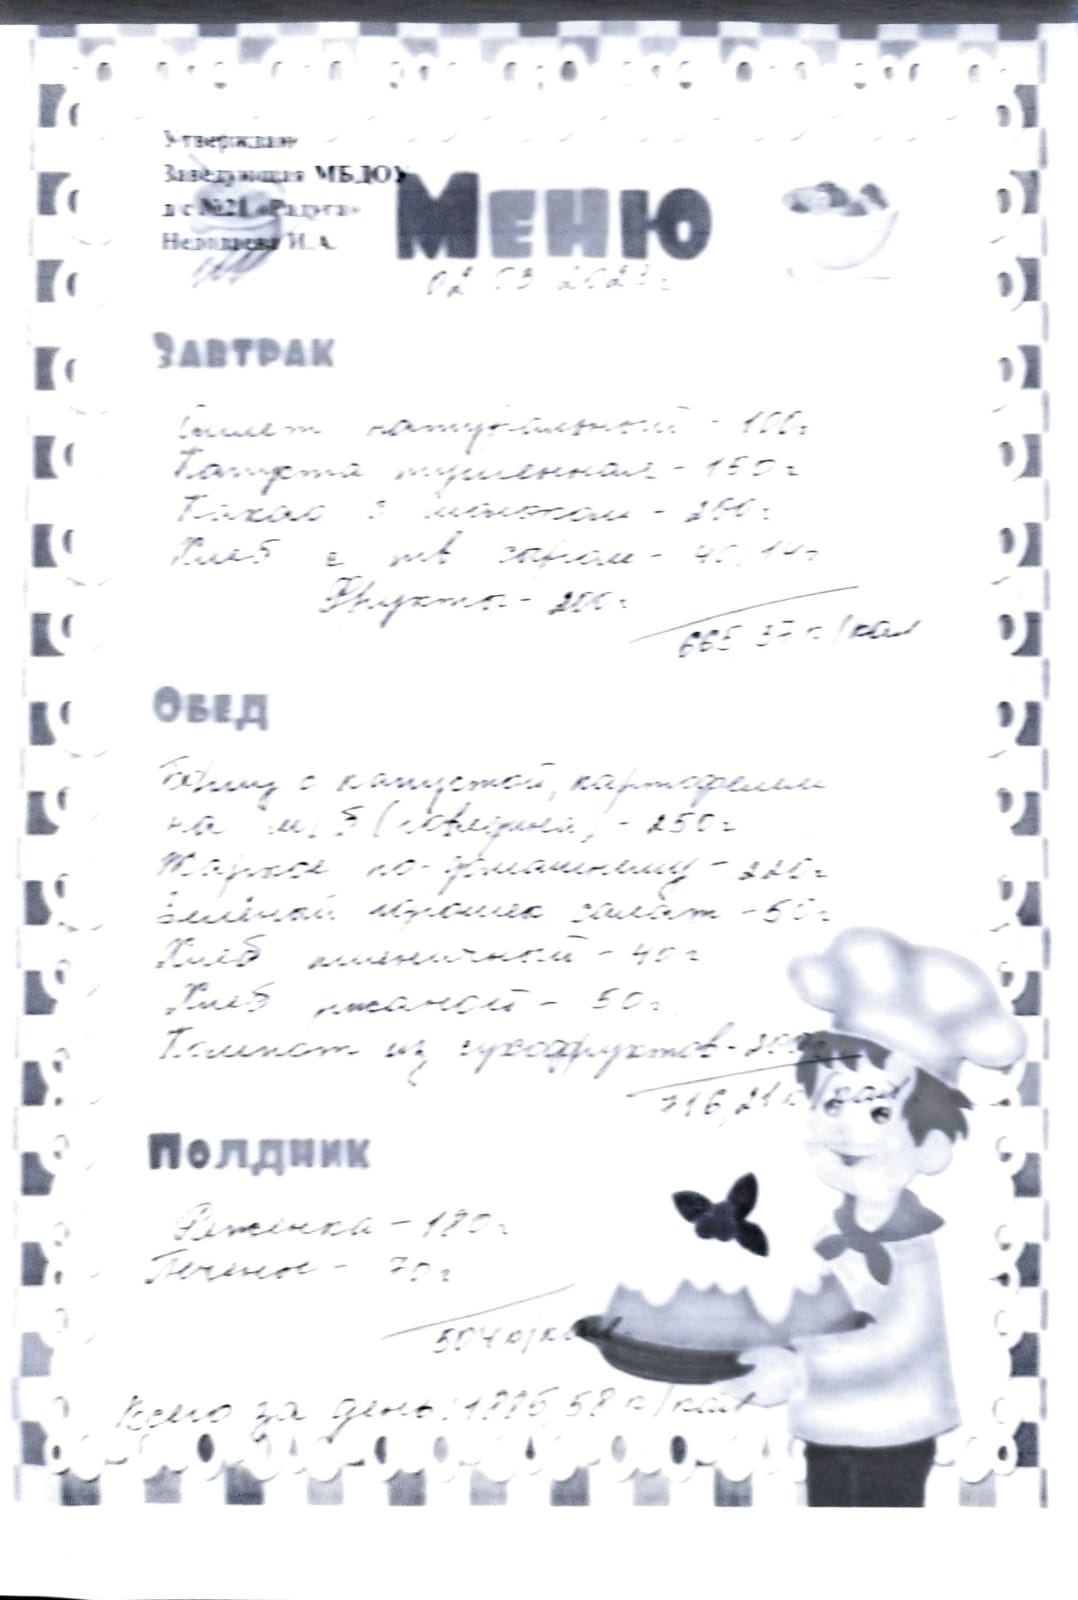 Утверждаю
Заведующая МБДОУ
д/с №21 «Радуга»
И.А.
Меню
02 03 2023г
Завтрак
Омлет натуральный - 100г
Капуста тушенная - 150г
Какао с молоком - 200г
Хлеб с тв сыром - 40/14г
Фрукты - 200г
665,37 к/кал
Обед
Борщ с капустой, картофелем
на м/б (говядина) - 250г
Жаркое по-домашнему - 220г
Зелёный горошек салат - 50г
Хлеб пшеничный - 40г
Хлеб ржаной - 50г
Компот из сухофруктов - 200г
716,21 к/кал
Полдник
Ряженка - 180г
Печенье - 70г
504 к/кал
Всего за день: 1885,58 к/кал